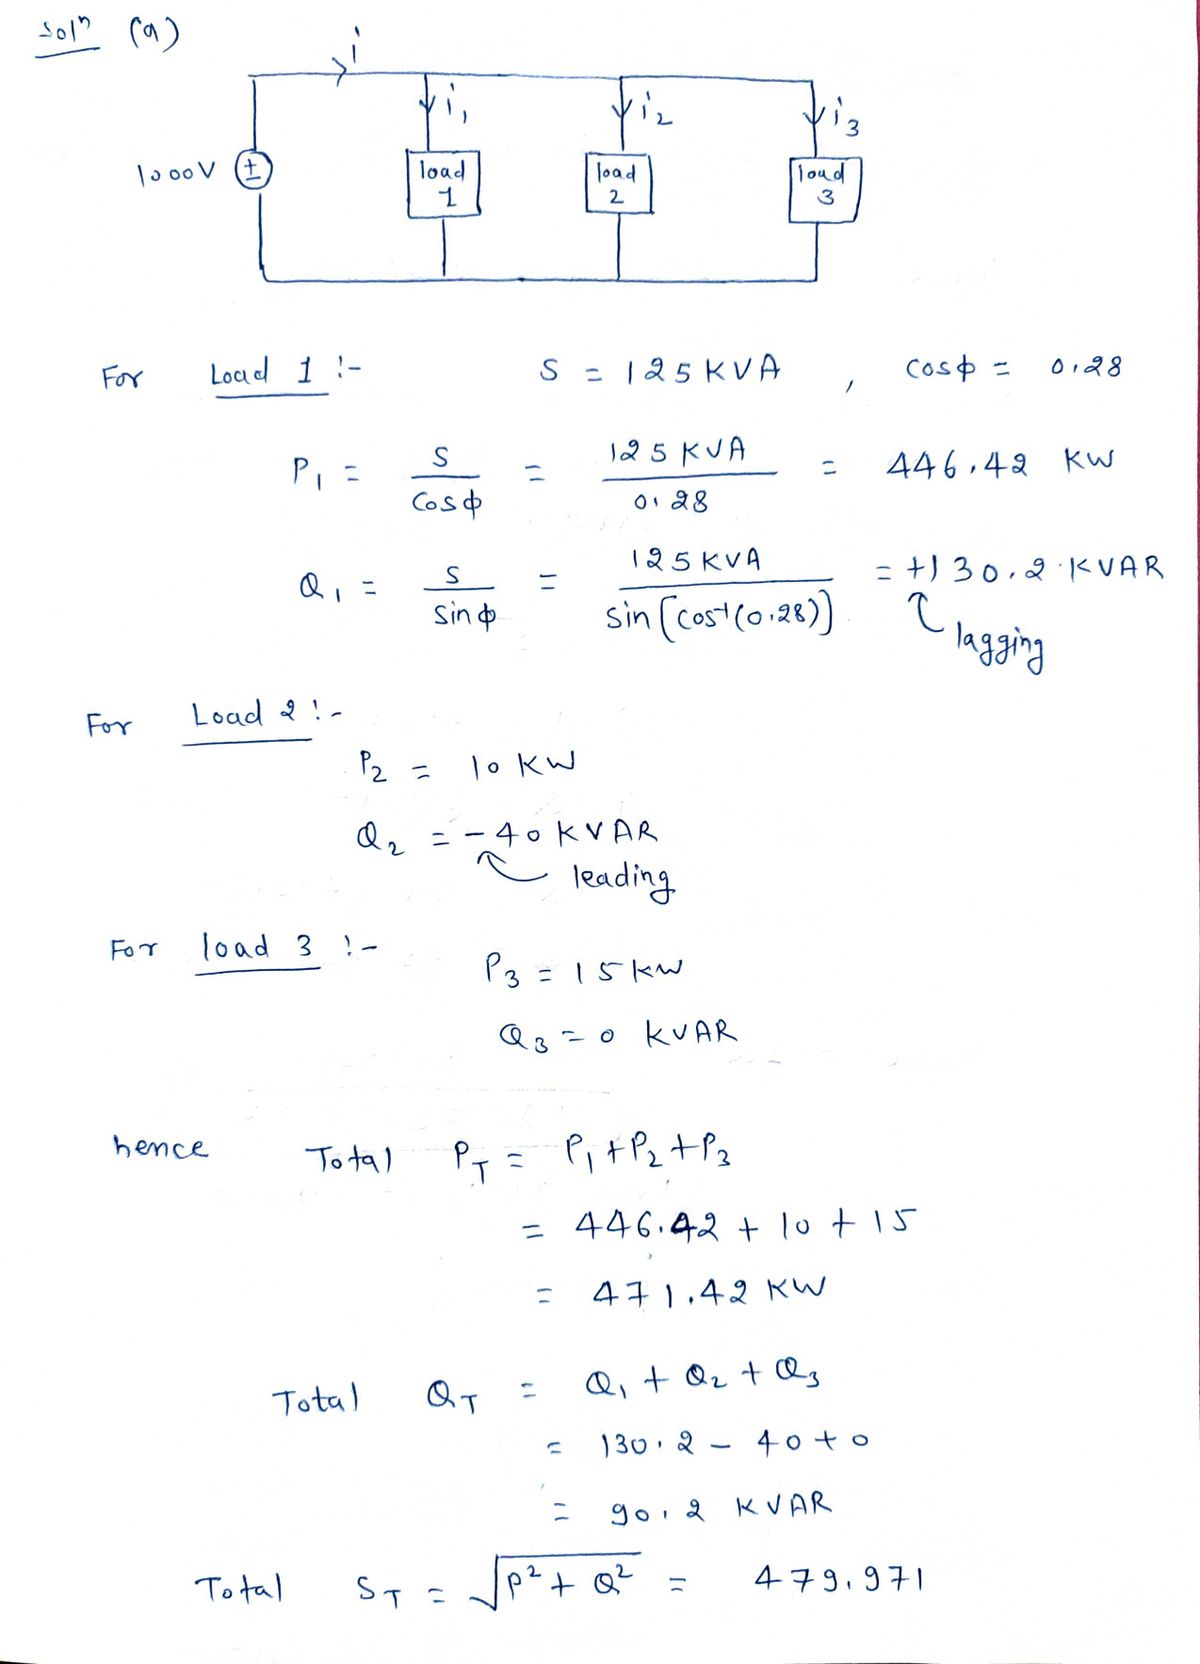 Solⁿ (a)
i
i₁ i₂ i₃
1000V ±
load 1
load 2
load 3
For Load 1 :- S = 125 KVA , cosϕ = 0.28
P₁ = S / Cosϕ = 125 KVA / 0.28 = 446.42 KW
Q₁ = S / Sinϕ = 125 KVA / sin[cos⁻¹(0.28)] = +130.2 KVAR
lagging
For Load 2 :-
P₂ = 10 KW
Q₂ = -40 KVAR
leading
For load 3 :-
P₃ = 15 KW
Q₃ = 0 KVAR
hence Total P_T = P₁ + P₂ + P₃
= 446.42 + 10 + 15
= 471.42 KW
Total Q_T = Q₁ + Q₂ + Q₃
= 130.2 - 40 + 0
= 90.2 KVAR
Total S_T = √(P² + Q²) = 479.971